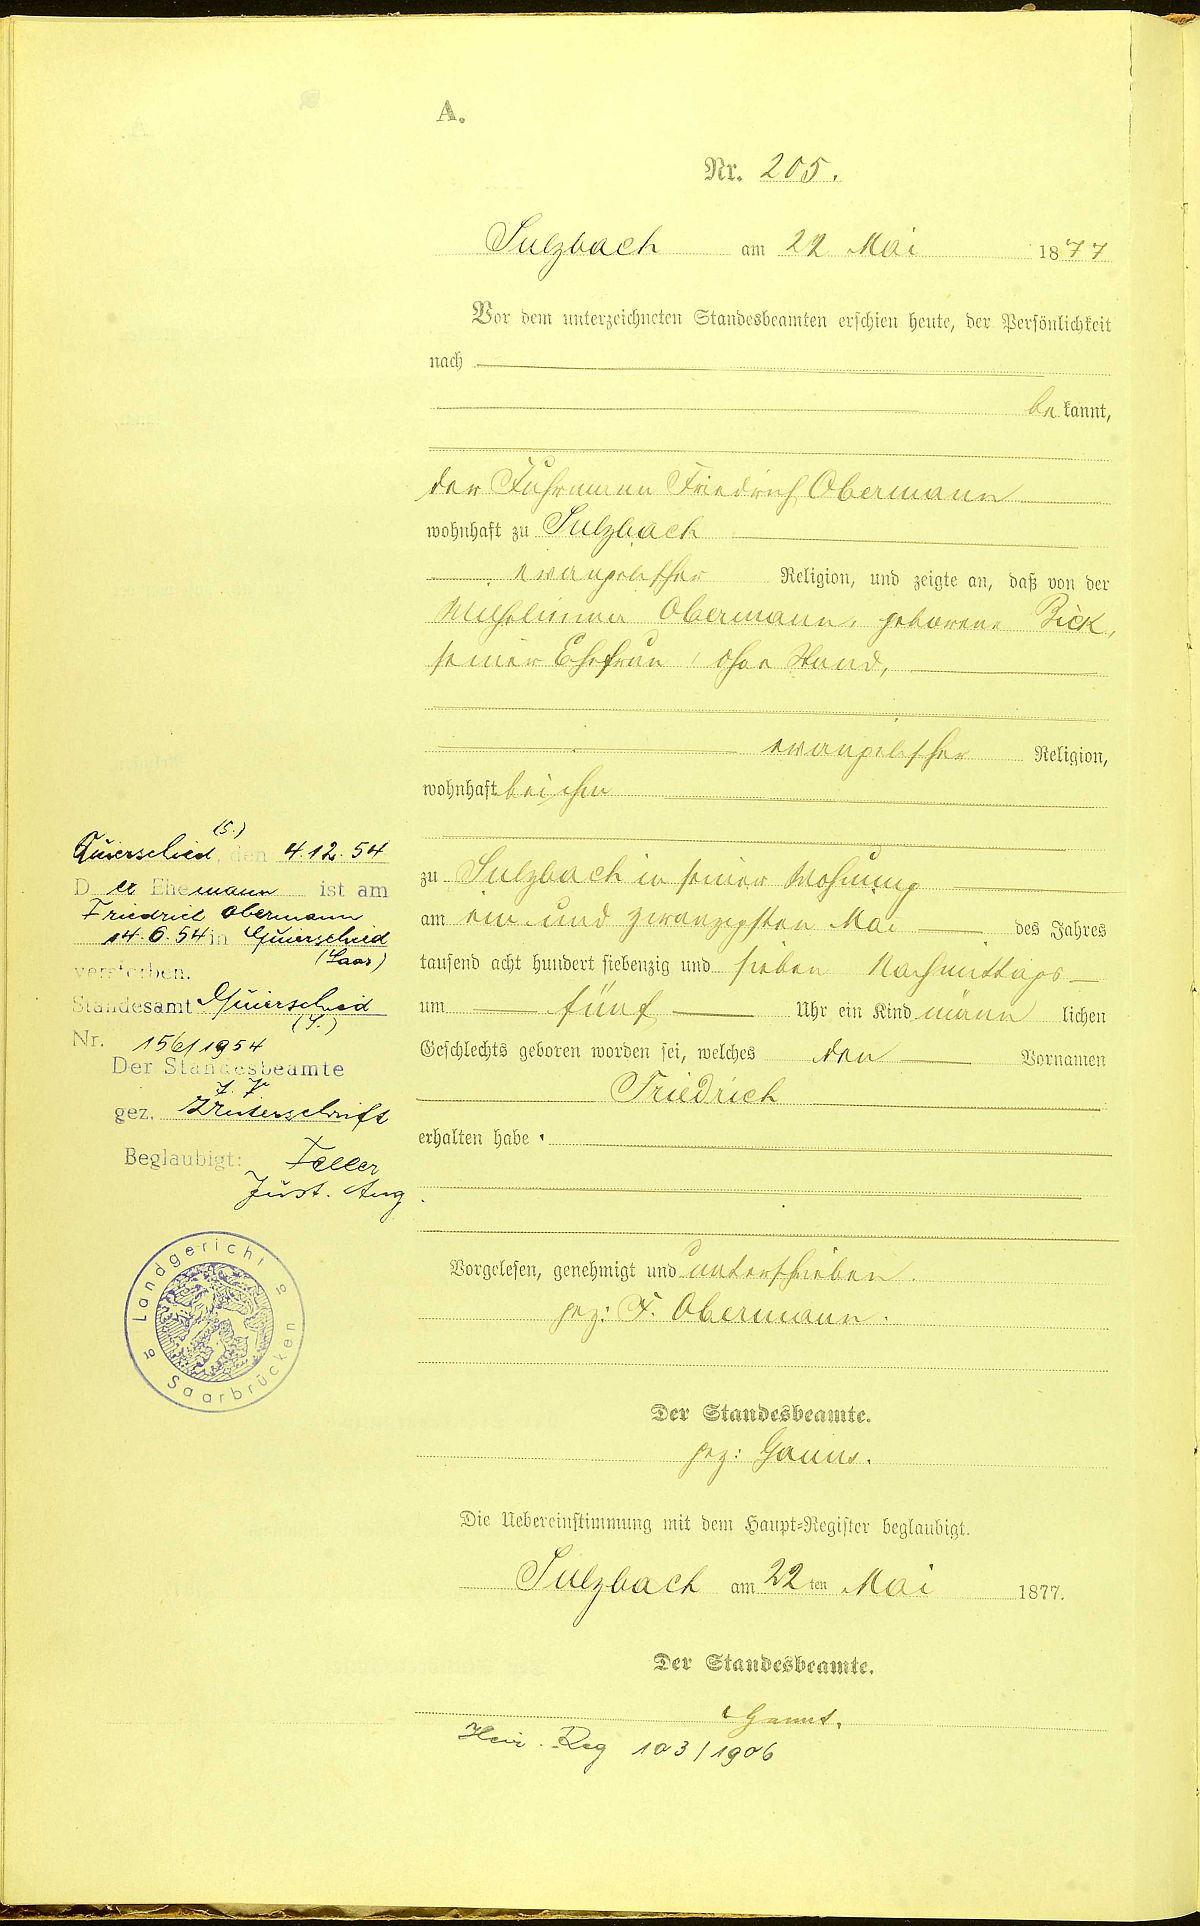 A.
Nr. 205.
Sulzbach am 22 Mai 1877
Vor dem unterzeichneten Standesbeamten erschien heute, der Persönlichkeit
nach
bekannt,
der Fuhrmann Friedrich Obermann
wohnhaft zu Sulzbach
evangelischer Religion, und zeigte an, daß von der
Wilhelmina Obermann, geborene Bick,
seiner Ehefrau, ohne Stand,
evangelischer Religion,
wohnhaft bei ihm
zu Sulzbach in seiner Wohnung
am ein und zwanzigsten Mai des Jahres
tausend acht hundert siebenzig und sieben Nachmittags
um fünf Uhr ein Kind männlichen
Geschlechts geboren worden sei, welches den Vornamen
Friedrich
erhalten habe.
Vorgelesen, genehmigt und unterschrieben
gez: F. Obermann.
Der Standesbeamte.
gez:
Die Uebereinstimmung mit dem Haupt-Register beglaubigt.
Sulzbach am 22ten Mai 1877.
Der Standesbeamte.
Heir. Reg 103/1906
(S.)
Quierschied, den 4.12.54
Der Ehemann ist am
Friedrich Obermann
14.6.54 in Quierschied
(Saar)
verstorben.
Standesamt Quierschied
(S.)
Nr. 156/1954
Der Standesbeamte
I. V.
gez. Unterschrift
Beglaubigt: Feller
Just. Ang.
Landgericht
Saarbrücken
10
10